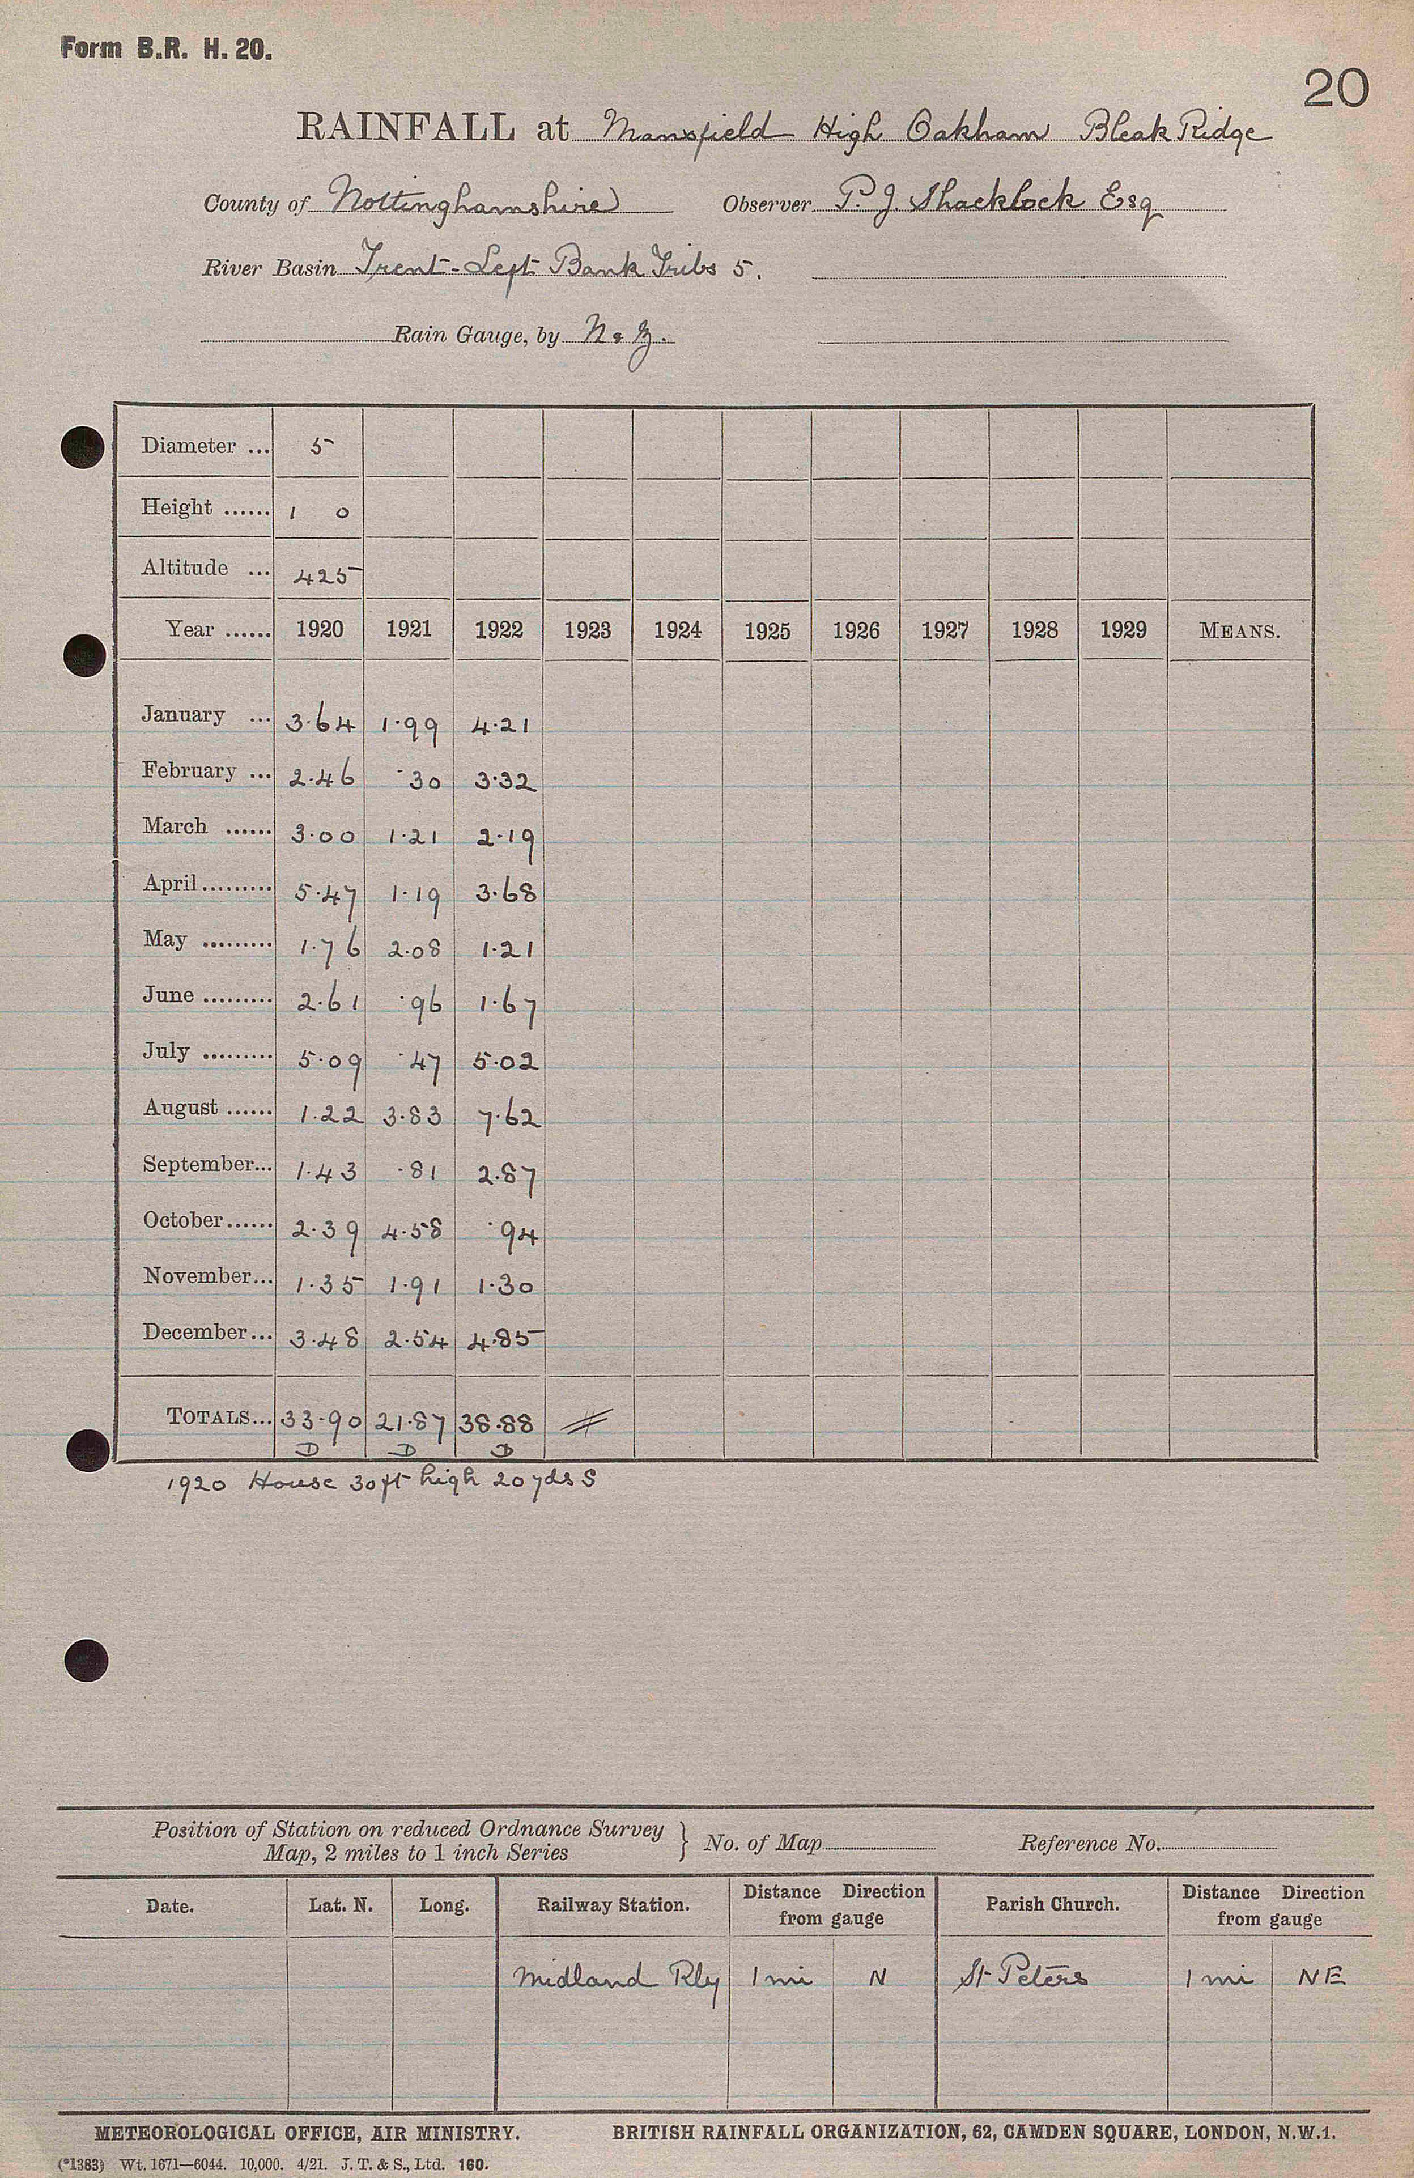 Form B.R. H. 20.
20
RAINFALL at Mansfield High Oakham Bleak Ridge
County of Nottinghamshire Observer P. J. Shacklock Esq
River Basin Trent - Left Bank Tribs 5.
Rain Gauge, by N & Z.
Diameter ... 5
Height ...... 1 0
Altitude ... 425
Year ...... 1920 1921 1922 1923 1924 1925 1926 1927 1928 1929 MEANS.
January ... 3.64 1.99 4.21
February ... 2.46 .30 3.32
March ...... 3.00 1.21 2.19
April ......... 5.47 1.19 3.68
May ......... 1.76 2.08 1.21
June ......... 2.61 .96 1.67
July ......... 5.09 .47 5.02
August ...... 1.22 3.83 7.62
September... 1.43 .81 2.87
October...... 2.39 4.58 .94
November... 1.35 1.91 1.30
December... 3.48 2.54 4.85
TOTALS... 33.90 21.87 38.88
D D D
1920 House 30ft high 20 yds S
Position of Station on reduced Ordnance Survey
Map, 2 miles to 1 inch Series } No. of Map Reference No.
Date. Lat. N. Long. Railway Station. Distance Direction from gauge Parish Church. Distance Direction from gauge
Midland Rly 1 mi N St Peters 1 mi NE
METEOROLOGICAL OFFICE, AIR MINISTRY. BRITISH RAINFALL ORGANIZATION, 62, CAMDEN SQUARE, LONDON, N.W.1.
(*1383) Wt. 1671—6044. 10,000. 4/21. J. T. & S., Ltd. 160.